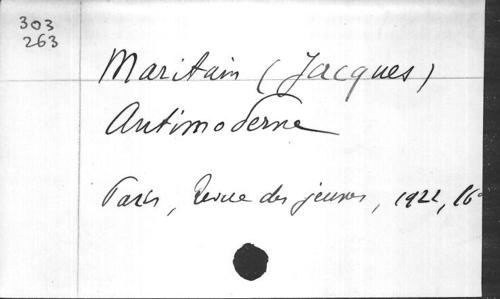 303
263
Maritain (Jacques)
Antimoderne
Paris, Revue des jeunes, 1922, 16°